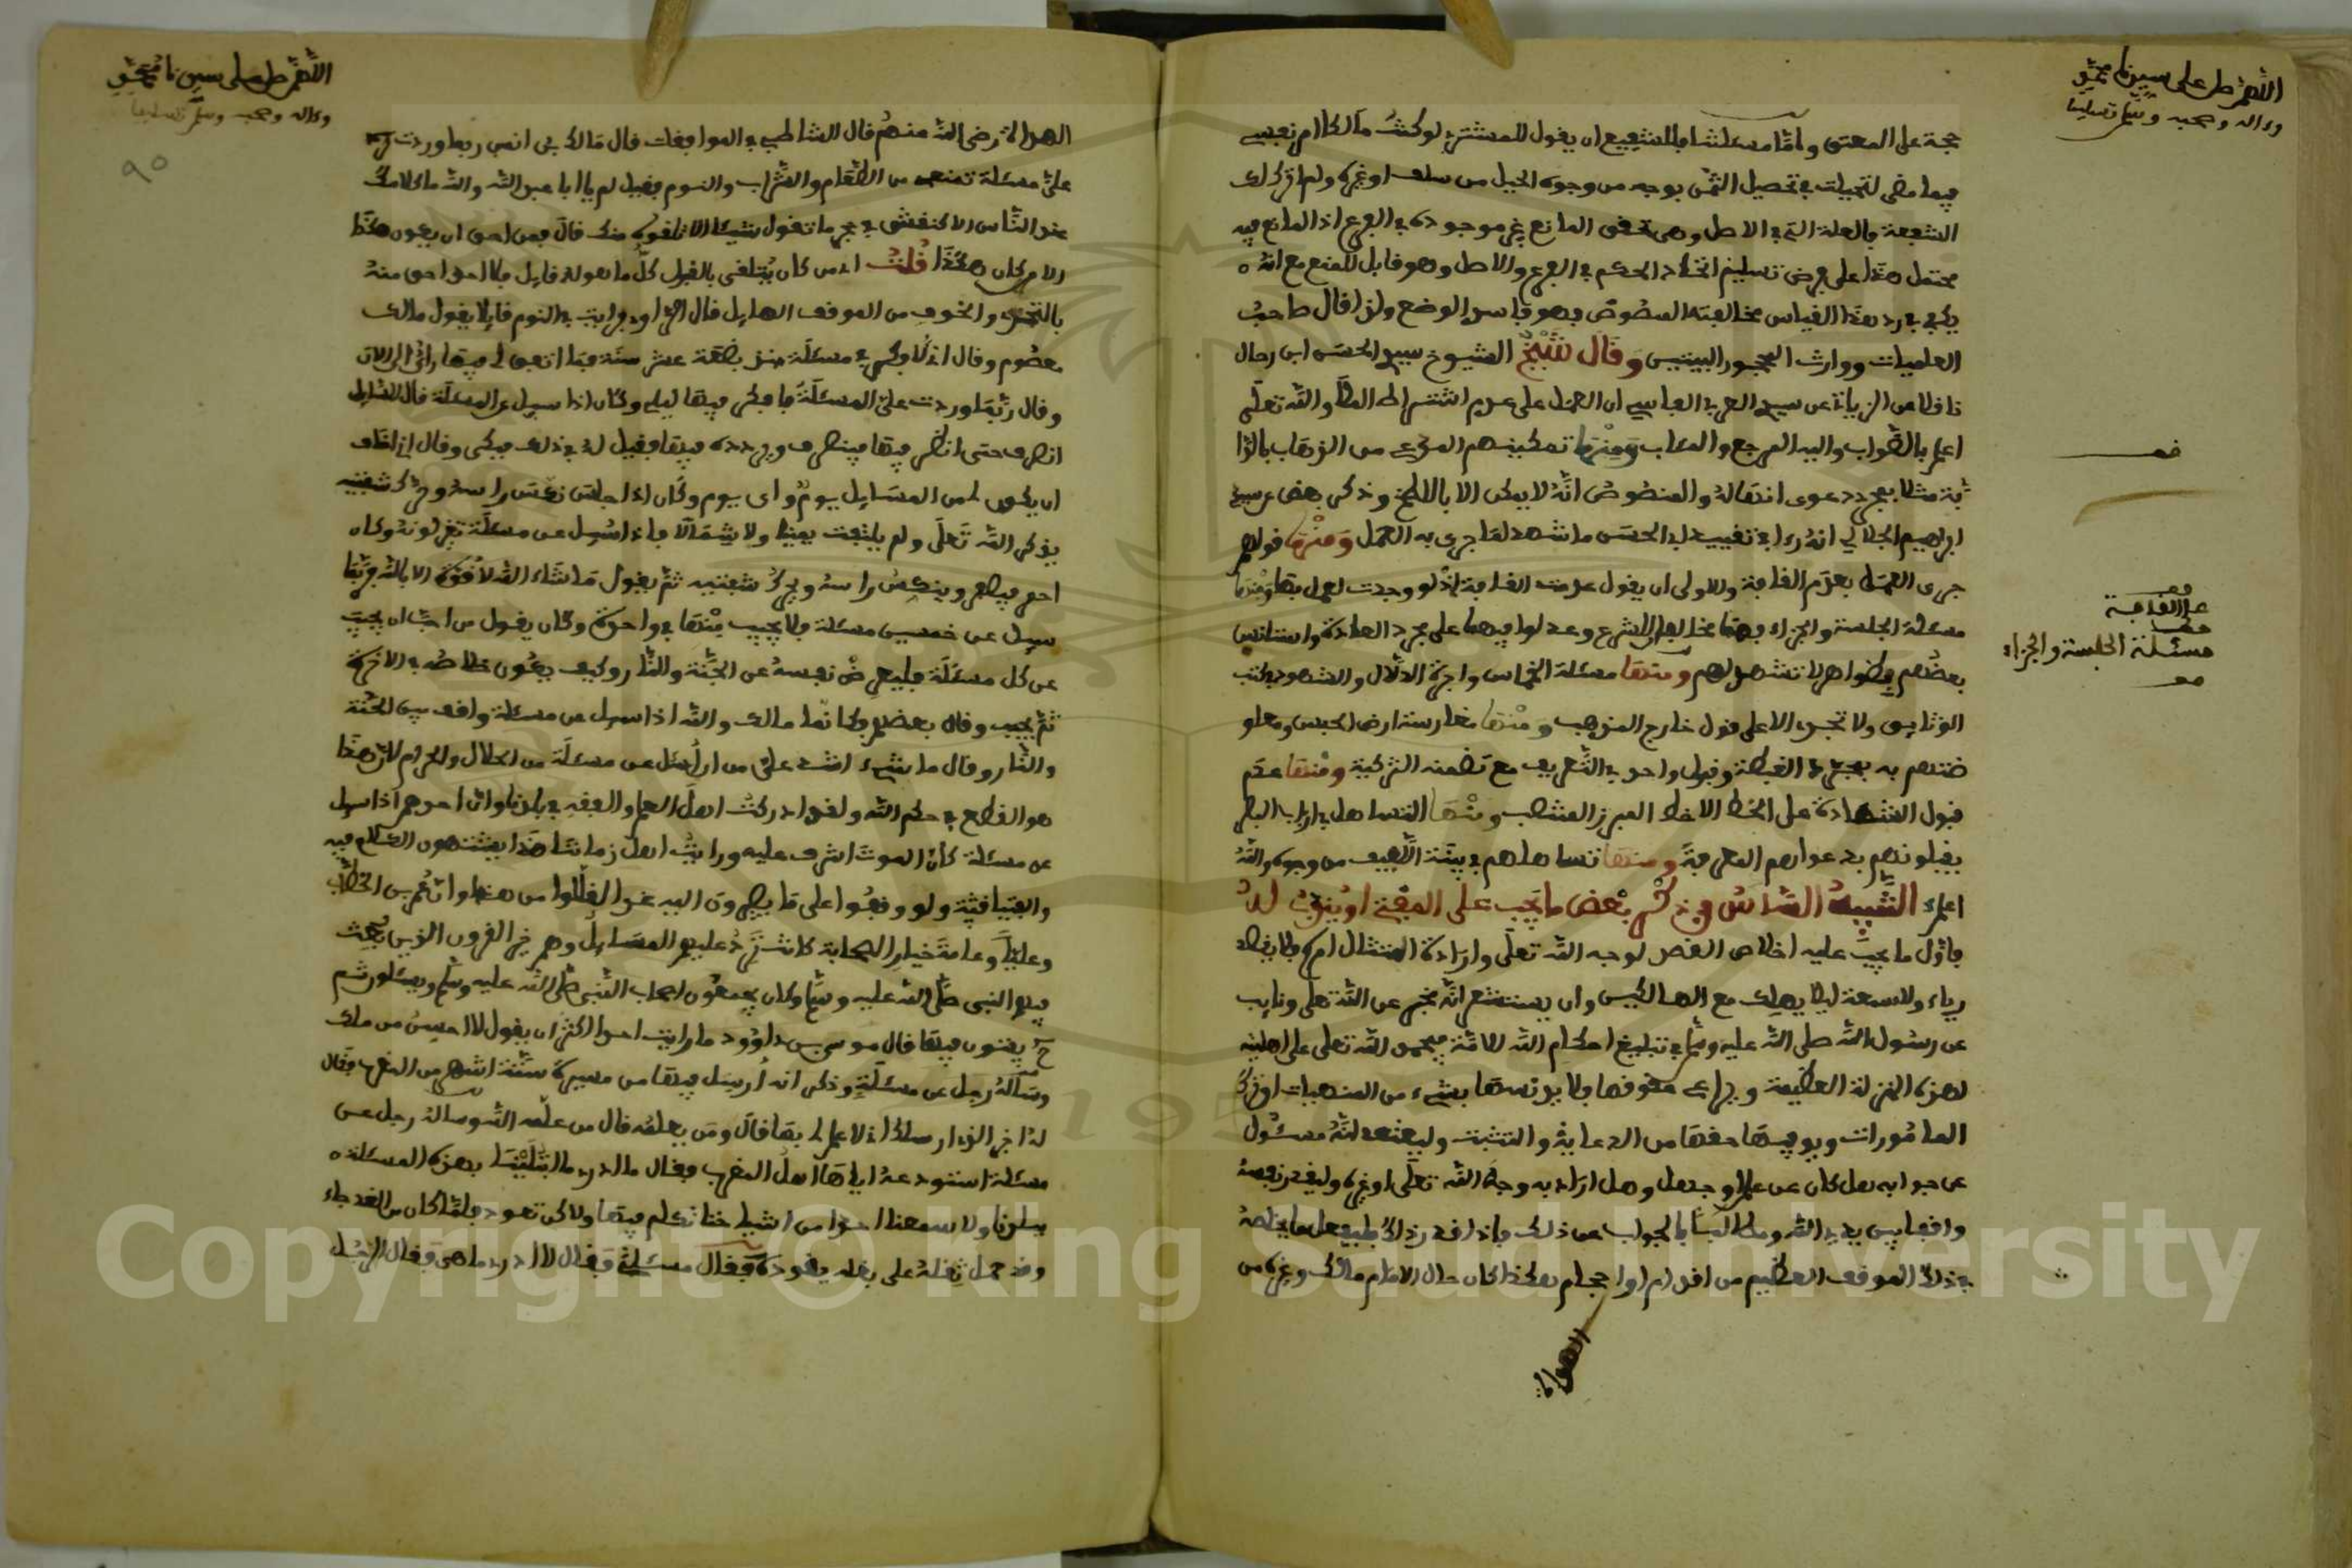 اللهم صل على سيدنا محمد
وءاله وصحبه وسلم تسليما
حجة على المفتي وأما مسئلتنا فللشفيع ان يقول للمشتري لو كنت مالكا امر نفسي
فيما مضى لتحيلت في تحصيل الثمن بوجه من وجوه الحيل من سلف او غيره ولم اترك لك
الشفعة فالعلة التي في الاصل وهي تحقق المانع غير موجودة في الفرع اذ المانع فيه
محتمل هذا على فرض تسليم اتحاد الحكم في الفرع والاصل وهو قابل للمنع مع انه
يكفي في رد هذا القياس مخالفته المنصوص فهو فاسد الوضع ولذا قال صاحب
العلميات ووارث المحجور البينيس وقال شيخ الشيوخ سيدي الحسن ابن رحال
ناقلا عن الزياتي عن سيدي العربي الفاسي ان العمل على عدم اشتراط الملأ والله تعلى
اعلم بالصواب واليه المرجع والمئاب ومنها تمكينهم المدعي من الذهاب بالدا
بة مثلا بمجرد دعوى انتقاله والمنصوص انه لا يمكن الا باللطخ وذكر بعض عن سيدي
ابراهيم الجلالي انه رءا في تقييد لابي الحسن ما شهد لما جرى به العمل ومنها قولهم
جرى العمل بعدم القافة وللاولى ان يقول عدمت القافة اذ لو وجدت لعمل بها ومنها
مسئلة الجلسة والجزاء فهما مخالفان للشرع وعدلوا فيهما على مجرد العادة واستانس
بعضهم بظواهر لا تشهد لهم ومنها مسئلة الخماس واجرة الدلال والشهود بكتب
الوثايق ولا تجري الا على قول خارج المذهب ومنها مغارسة ارض الحبس ومعاو
ضتهم به بمجرد الغبطة وقبول واحد في التعريف مع تضمنه التزكية ومنها عدم
قبول الشهادة على الخط الا خط المبرز المنتصب ومنها التساهل في ارباب البصر
يقبلونهم بدعواهم المعرفة ومنها تساهلهم في بينة اللفيف من وجوه والله
اعلم التنبيه السادس في ذكر بعض ما يجب على المفتي او يندب له
فاول ما يجب عليه اخلاص القصد لوجه الله تعلى وارادة امتثال امره فلا يفتي
رياء ولا سمعة ليلا يهلك مع الهالكين وان يستشعر انه مخبر عن الله تعلى ونايب
عن رسول الله صلى الله عليه وسلم في تبليغ احكام الله للامة فيحمد الله تعلى على اهليته
لهذه المنزلة العظيمة ويراعي حقوقها فلا يدنسها بشيء من المنهيات او ترك
المامورات ويوفيها حقها من الرعاية والتثبت وليعتقد انه مسئول
عن جوابه هل كان عن علم او جهل وهل اراد به وجه الله تعلى او غيره وليقدر نفسه
واقفا بين يدي الله ومطالبا بالجواب عن ذلك فاذا قدر ذلك فليفعل ما يخلصه
في ذلك الموقف العظيم من اقدام او احجام هكذا كان حال الامام مالك وغيره من
الهداة
قف
قف
عدم القافة
قف
مسئلة الجلسة والجزاء
قف
اللهم صل على سيدنا محمد
وءاله وصحبه وسلم تسليما
٩٥
الهداة رضي الله عنهم قال الشاطبي في الموافقات قال مالك بن انس ربما وردت
علي مسئلة تمنعني من الطعام والشراب والنوم فقيل له يا ابا عبد الله والله ما كلامك
عند الناس الا كنقش في حجر ما تقول شيئا الا تلقوه منك قال فمن احق ان يكون هكذا
الا من كان هكذا قلت اذ من كان يتلقى بالقبول كل ما هو له قايل فلا احد احق منه
بالتحري والخوف من الموقف الهايل قال الراوي فرايت في النوم قايلا يقول مالك
معصوم وقال اني لافكر في مسئلة منذ بضعة عشر سنة فما اتفق لي فيها رائ الى الان
وقال ربما وردت علي المسئلة فافكر فيها ليلي وكان اذا سيل عن المسئلة قال للسايل
انصرف حتى انظر فيها فينصرف ويردده فيها فقيل له في ذلك فبكى وقال اني اخاف
ان يكون لي من المسايل يوم واي يوم وكان اذا جلس نكس راسه وحرك شفتيه
يذكر الله تعلى ولم يلتفت يمينا ولا شمالا فاذا سيل عن مسئلة تغير لونه وكان
احمر فيصفر وينكس راسه ويحرك شفتيه ثم يقول ما شاء الله لا قوة الا بالله فربما
سيل عن خمسين مسئلة فلا يجيب منها في واحدة وكان يقول من احب ان يجيب
عن كل مسئلة فليعرض نفسه عن الجنة والنار وكيف يكون خلاصه في الاخرة
ثم يجيب وقال بعضهم لكانما مالك والله اذا سيل عن مسئلة واقف بين الجنة
والنار وقال ما شيء اشد علي من ان اسئل عن مسئلة من الحلال والحرام لان هذا
هو القطع في حكم الله ولقد ادركت اهل العلم والفقه ببلدنا وان احدهم اذا سيل
عن مسئلة كأن الموت اشرف عليه ورايت اهل زماننا هذا يشتهون الكلام فيه
والفتيا فيه ولو وقفوا على ما يصيرون اليه غدا لقللوا من هذا وان عمر بن الخطاب
وعليا وعامة خيار الصحابة كانت ترد عليهم المسايل وهم خير القرون الذين بعث
فيهم النبي صلى الله عليه وسلم وكان يجمعون اصحاب النبي صلى الله عليه وسلم ويسئلون ثم
ح يفتون فيها قال موسى بن داوود ما رايت احدا اكثر ان يقول لا احسن من مالك
وسأله رجل عن مسئلة وذكر انه ارسل فيها من مسيرة ستة اشهر من المغرب فقال
له اخبر الذي ارسلك اني لا علم لي بها قال ومن يعلمها قال من علمه الله وساله رجل عن
مسئلة استودعه اياها اهل المغرب فقال ما ادري ما ابتلينا بهذه المسئلة
ببلدنا ولا سمعنا احدا من اشياخنا تكلم فيها ولاكن تعود فلما كان من الغد جاء
وقد حمل ثقله على بغله يقوده فقال مسئلتي فقال لا ادري ما هي فقال الرجل
Copyright © King Saud University
195